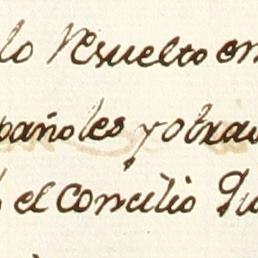 lo resuelto en
pañoles y otras
el Concilio